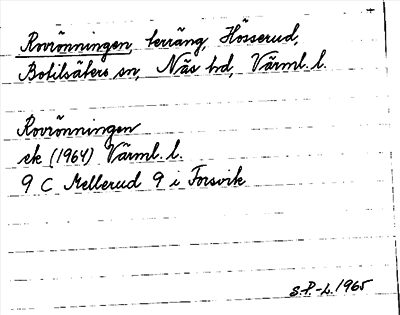 Rovrönningen, terräng, Hösserud,
Botilsäters sn, Näs hd, Värml. l.
Rovrönningen
ek (1964) Värml. l.
9 C Mellerud 9 i Forsvik
S.P.-L. 1965